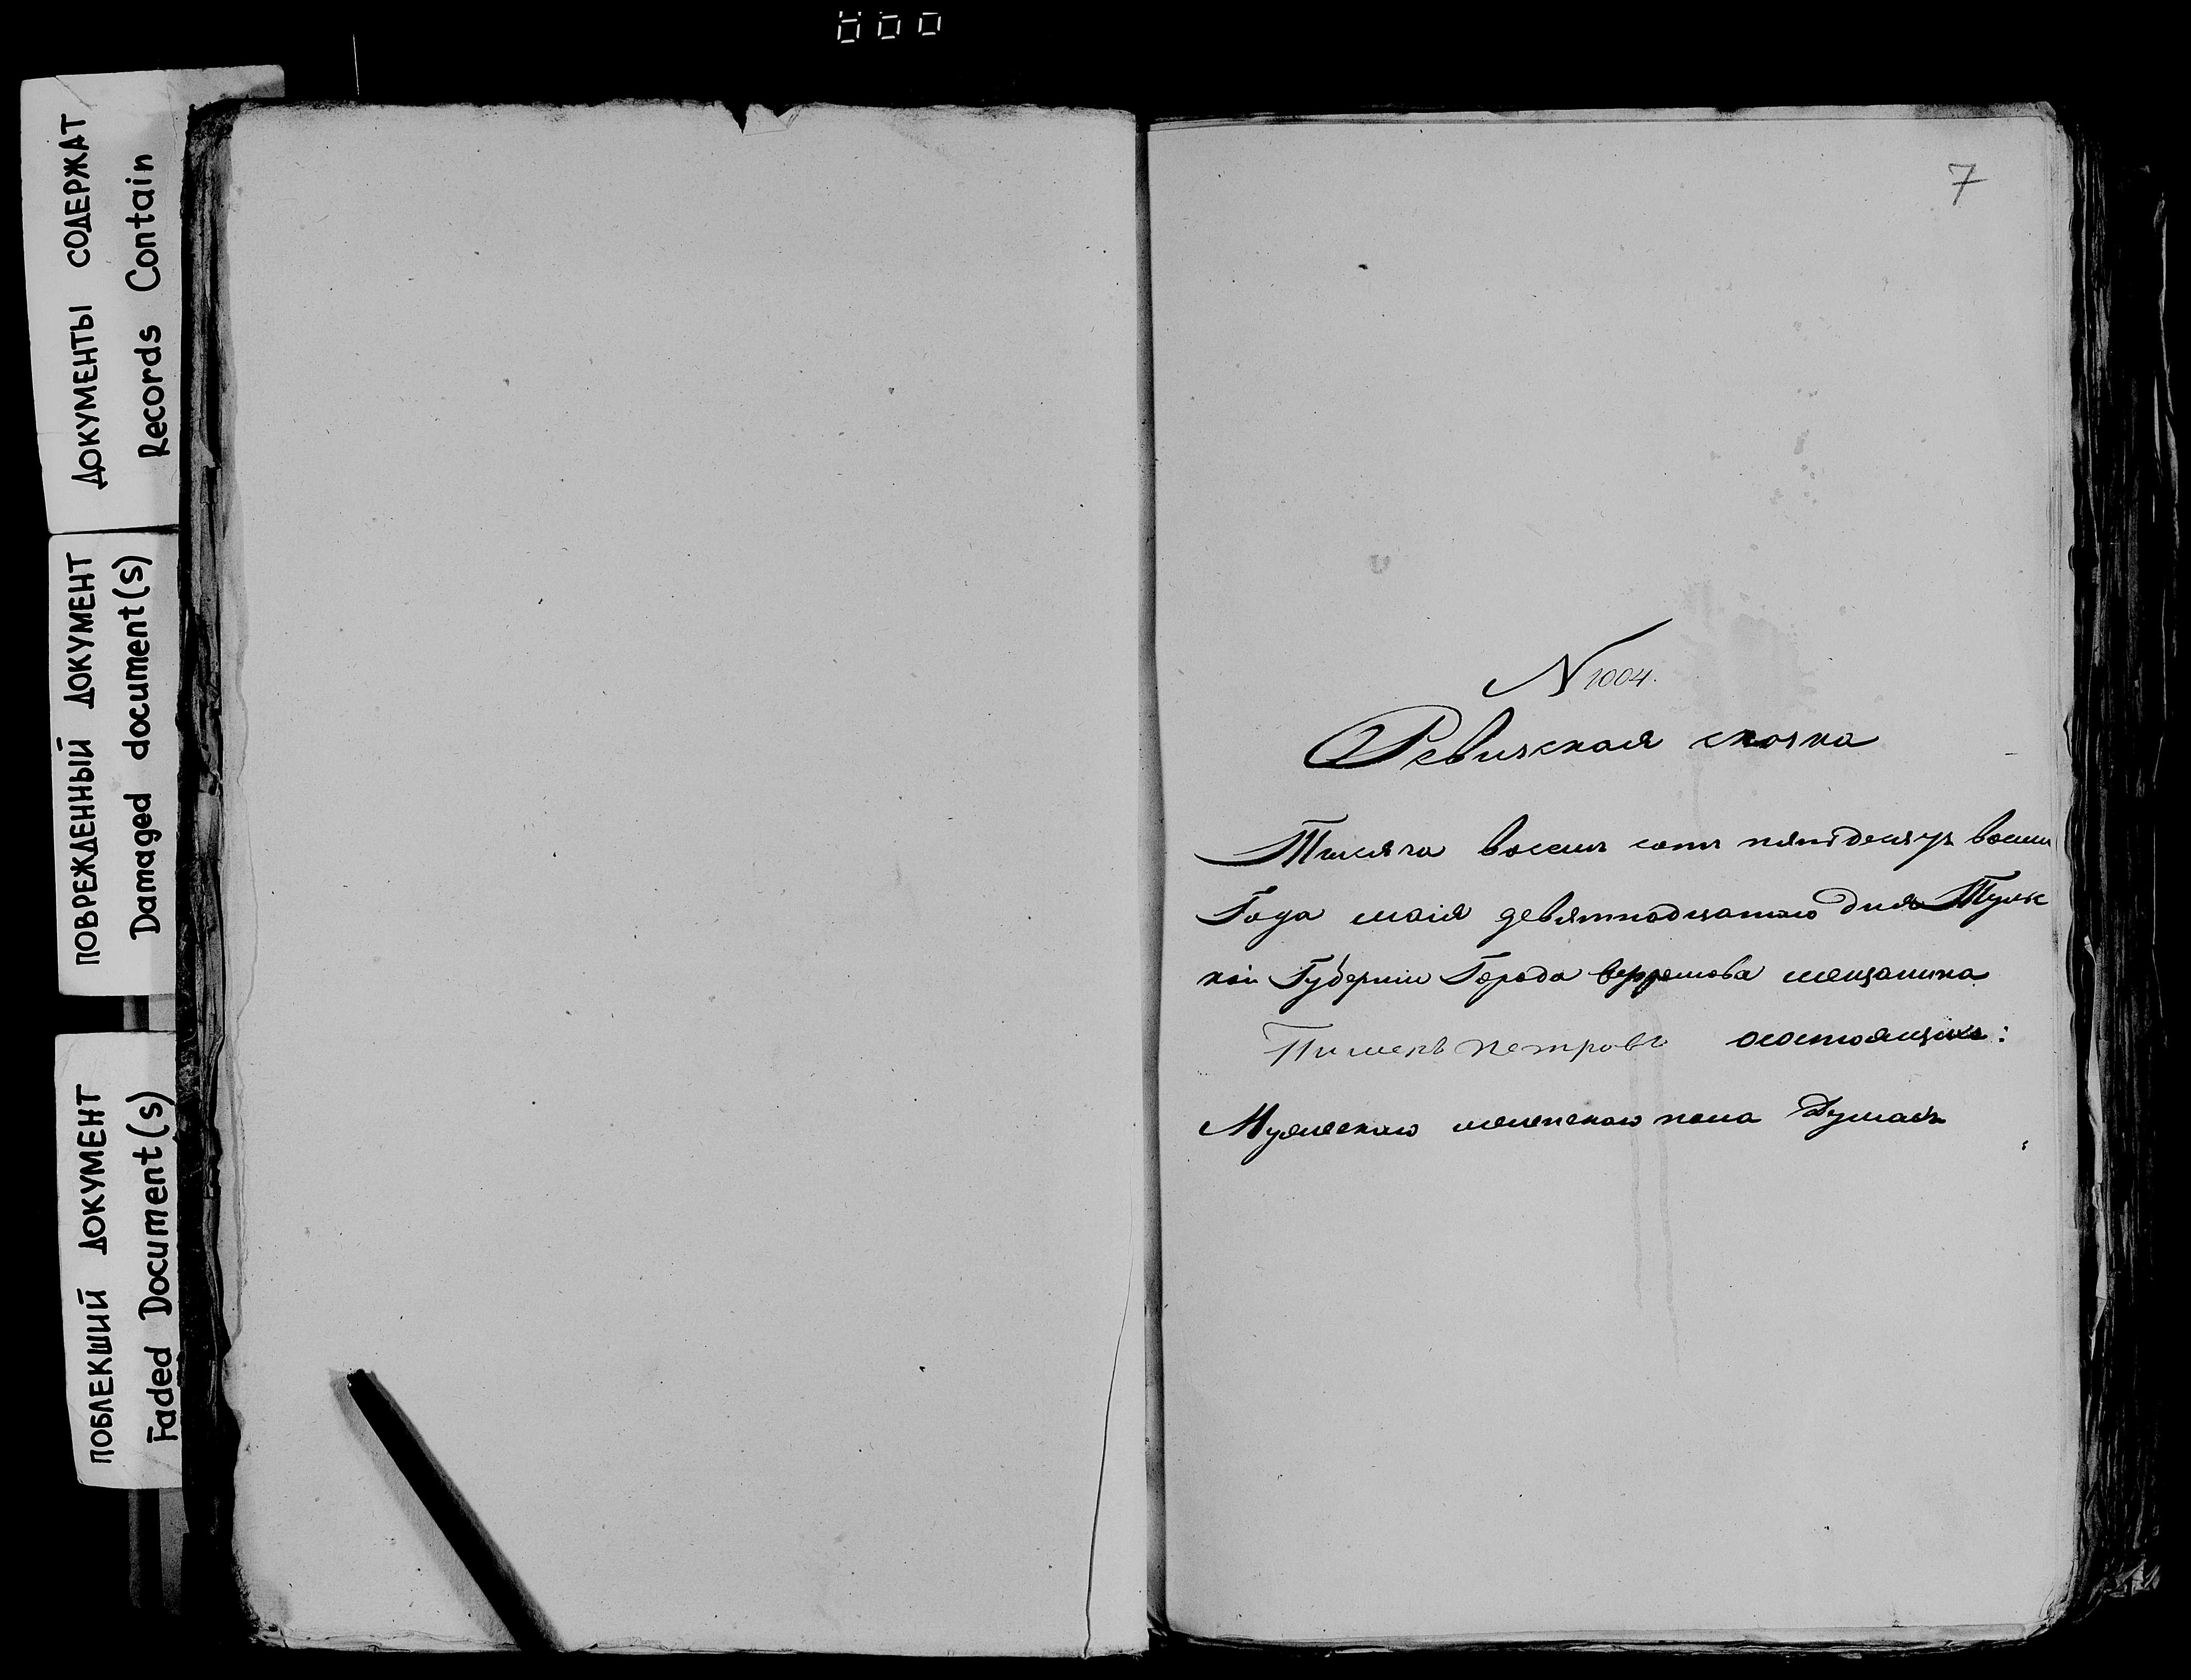 ДОКУМЕНТЫ СОДЕРЖАТ
Records Contain
ПОВРЕЖДЕННЫЙ ДОКУМЕНТ
Damaged document(s)
ПОБЛЕКШИЙ ДОКУМЕНТ
Faded Document(s)
7
N 1004.
Ревизская сказка
Тысяча восемь сотъ пятьдесятъ восьм
Года маія девятнадцатаго дня Тульс
кой Губерніи Города Ефремова мещанина
Пимена Петрова о состоящихъ:
Мужескаго женскаго пола Душахъ